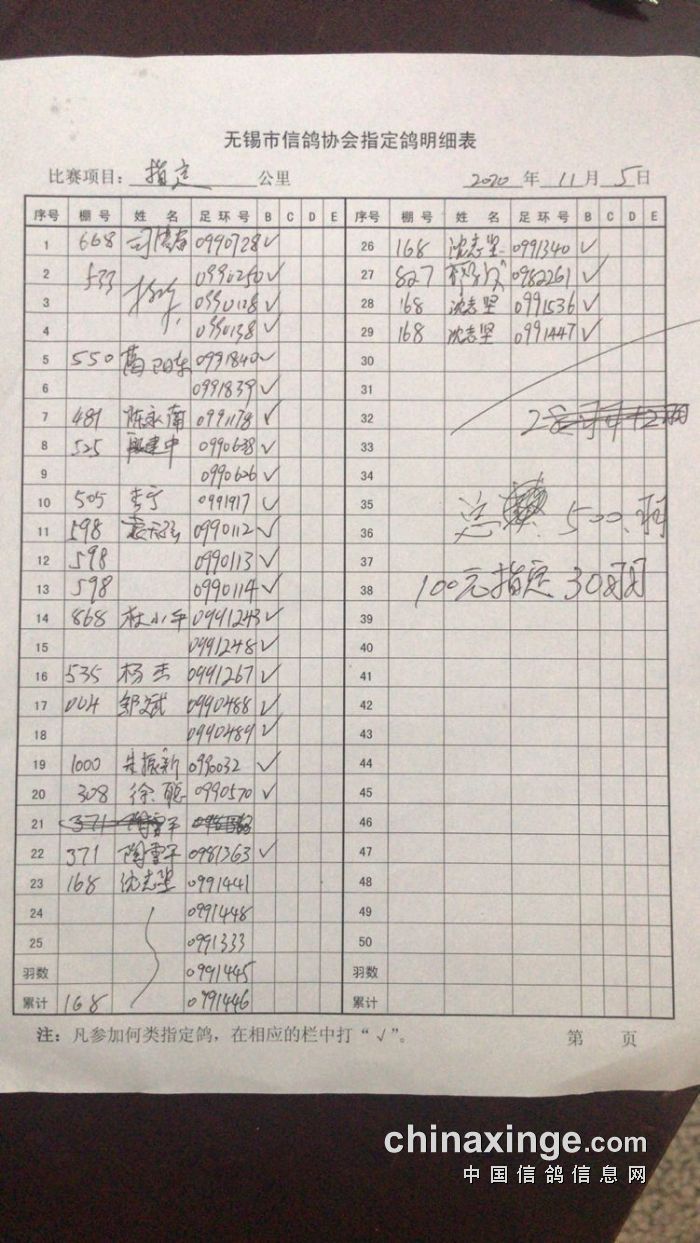 无锡市信鸽协会指定鸽明细表
比赛项目：指定 公里 2020 年 11 月 5 日
序号 棚号 姓名 足环号 B C D E
1 668 0990728 √
2 533 0990250 √
3 0990128 √
4 0990138 √
5 550 0991840 √
6 0991839 √
7 481 陈永南 0991178 √
8 525 建中 0990638 √
9 0990626 √
10 505 李宁 0991917 √
11 598 0990112 √
12 598 0990113 √
13 598 0990114 √
14 868 杜小平 0991243 √
15 0991248 √
16 535 杨杰 0991267 √
17 004 邹斌 0990488 √
18 0990489 √
19 1000 朱振新 0990032 √
20 308 徐聪 0990570 √
21 371 陶雪平
22 371 陶雪平 0981363 √
23 168 沈志坚 0991441
24 0991448
25 0991333
羽数 0991445
累计 168 0991446
序号 棚号 姓名 足环号 B C D E
26 168 沈志坚 0991340 √
27 827 0982261 √
28 168 沈志坚 0991536 √
29 168 沈志坚 0991447 √
30
31
32
33
34
35
36 总 500 羽
37
38 100元指定 30羽
39
40
41
42
43
44
45
46
47
48
49
50
羽数
累计
注：凡参加何类指定鸽，在相应的栏中打“√”。
第 页
chinaxinge.com
中国信鸽信息网